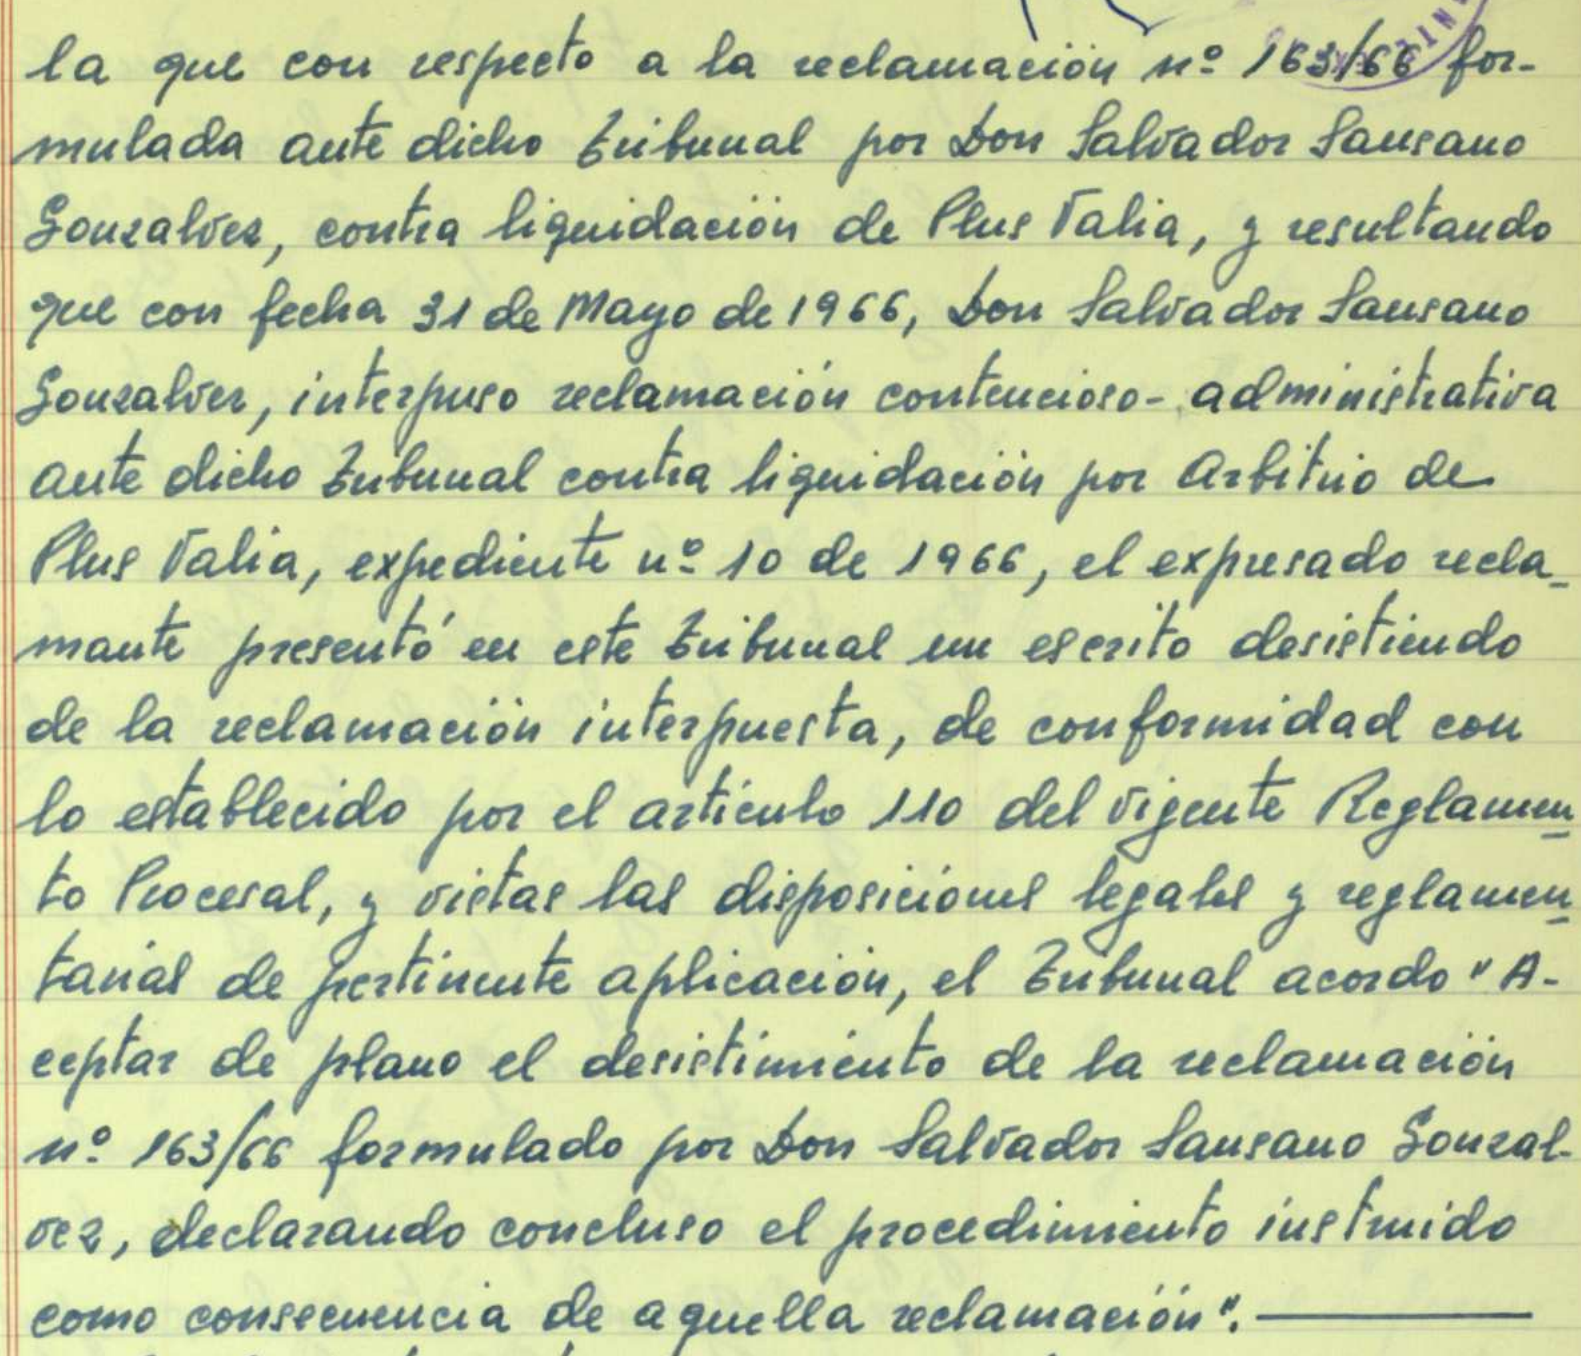 la que con respecto a la reclamación nº 163/66 for-
mulada ante dicho Tribunal por Don Salvador Sansano
Gonzalvez, contra liquidación de Plus Valia, y resultando
que con fecha 31 de Mayo de 1966, Don Salvador Sansano
Gonzalvez, interpuso reclamación contencioso-administrativa
ante dicho Tribunal contra liquidación por Arbitrio de
Plus Valia, expediente nº 10 de 1966, el expresado recla-
mante presentó en este Tribunal un escrito desistiendo
de la reclamación interpuesta, de conformidad con
lo establecido por el artículo 110 del vigente Reglamen-
to Procesal, y vistas las disposiciones legales y reglamen-
tarias de pertinente aplicación, el Tribunal acordo "A-
ceptar de plano el desistimiento de la reclamación
nº 163/66 formulado por Don Salvador Sansano Gonzal-
vez, declarando concluso el procedimiento instruido
como consecuencia de aquella reclamación".